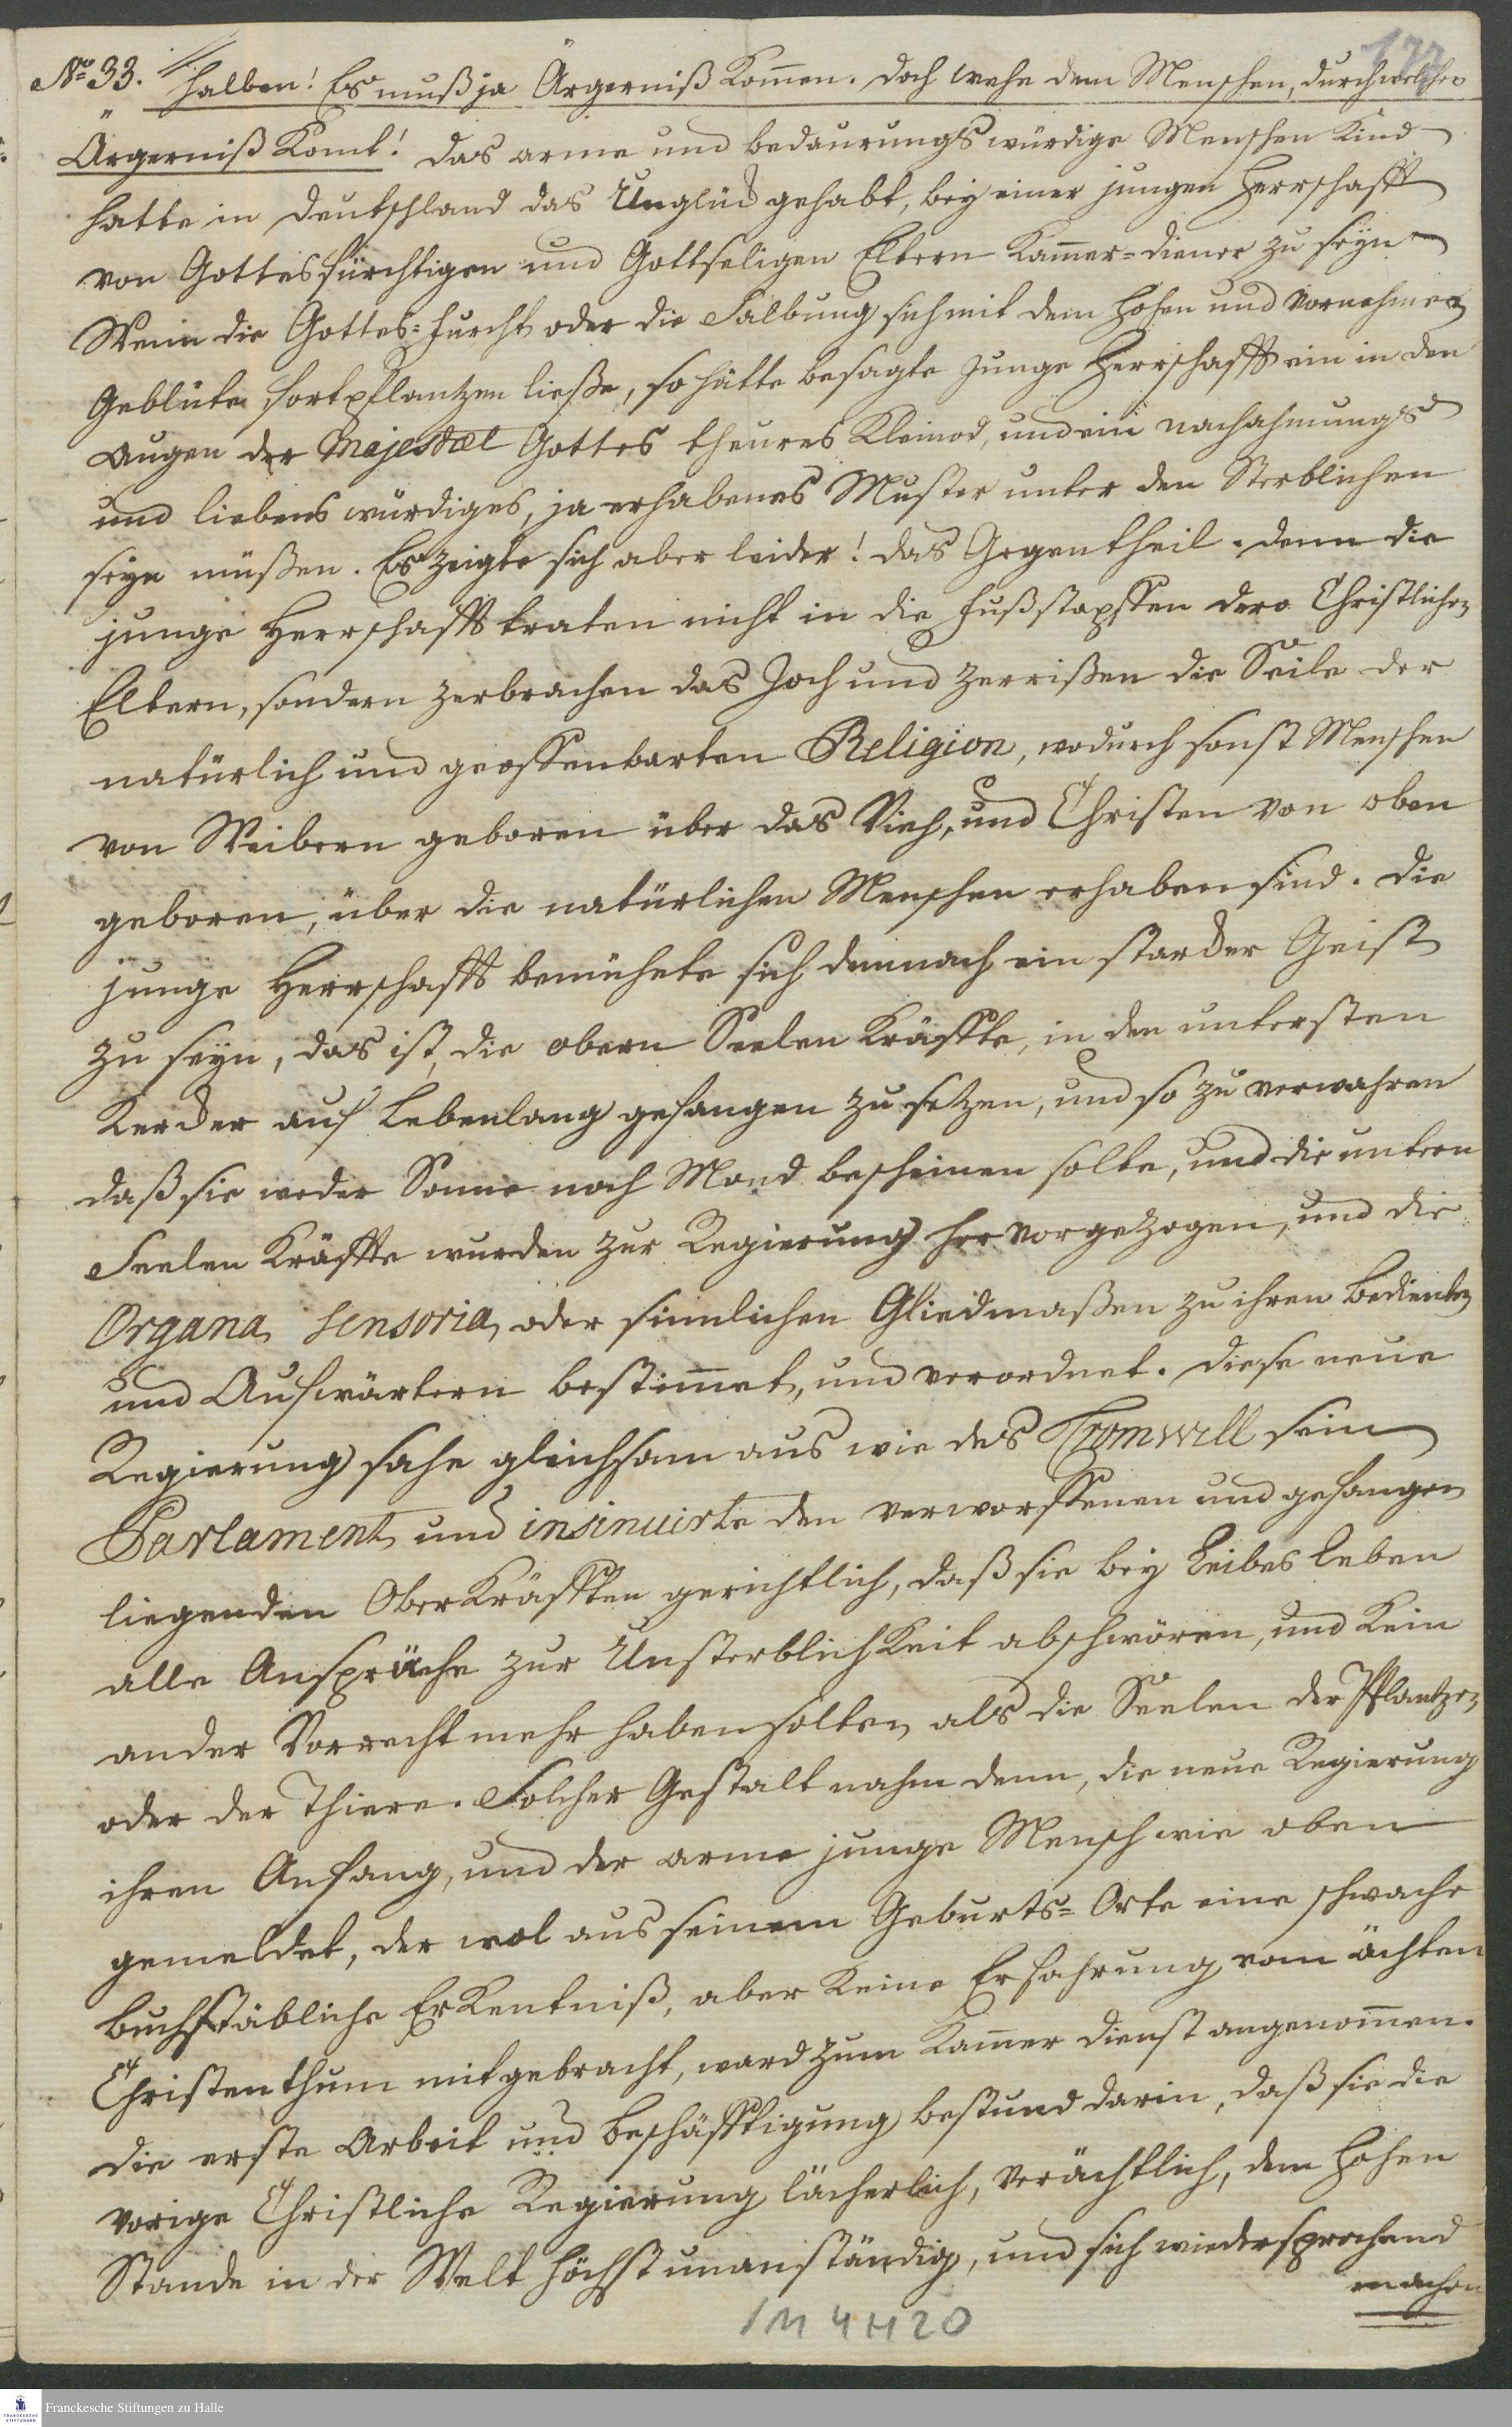 No 33. halben! Es muß ja Ärgerniß kom̄en. Doch wehe dem Menschen, durch welchen
Ärgerniß komt! Das arme und bedaurungs würdige Menschen Kind
hatte in Deutschland das Unglück gehabt, bey einer jungen Herrschafft
von Gottesfürchtigen und Gottseligen Eltern Kam̄er-diener zu seyn
Wenn die Gottes-furcht oder die Salbung sich mit dem hohen und vornehmen
Geblüte fortpflantzen ließe, so hätte besagte junge Herrschafft ein in den
Augen der Majestæt Gottes theures Kleinod, und ein nachahmungs
und liebens würdiges, ja erhabenes Muster unter den Sterblichen
seyn müßen. Es zeigte sich aber leider! das Gegentheil. Denn die
junge Herrschafft traten nicht in die Fußstapffen dero Christlichen
Eltern, sondern zerbrachen das Joch und zerrißen die Seile der
natürlich und geoffenbarten Religion, wodurch sonst Menschen
von Weibern geboren über das Vieh, und Christen von oben
geboren, über die natürlichen Menschen erhaben sind. Die
junge Herrschafft bemühete sich demnach ein starcker Geist
zu seyn, das ist, die obern Seelen Kräffte, in den untersten
Kercker auf Lebenlang gefangen zu setzen, und so zu verwahren
daß sie weder Sonne noch Mond bescheinen solte, und die untern
Seelen Kräffte wurden zur Regierung hervorgezogen, und die
Organa sensoria, oder sinnlichen Gliedmaßen zu ihren Bedienten
und Aufwärtern bestim̄et, und verordnet. Diese neue
Regierung sahe gleichsam aus wie des Cromwell sein
Parlament und insinuirte den verworffenen und gefangen
liegenden Ober Kräfften gerichtlich, daß sie bey Leibes Leben
alle Ansprüche zur Unsterblichkeit abschwören, und kein
ander Vorrecht mehr haben solten, als die Seelen der Pflantzen
oder der Thiere. Solcher Gestalt nahm denn, die neue Regierung
ihren Anfang, und der arme junge Mensch wie oben
gemeldet, der wol aus seinem Geburts-Orte eine schwache
buchstäbliche Erkentniß, aber keine Erfahrung vom ächten
Christenthum mitgebracht, ward zum Kam̄er Dienst angenom̄en.
Die erste Arbeit und Beschäfftigung bestund darin, daß sie die
vorige Christliche Regierung lächerlich, verächtlich, dem hohen
Stande in der Welt höchst unanständig, und sich wiedersprechend
machen
1M 4H20
Franckesche Stiftungen zu Halle